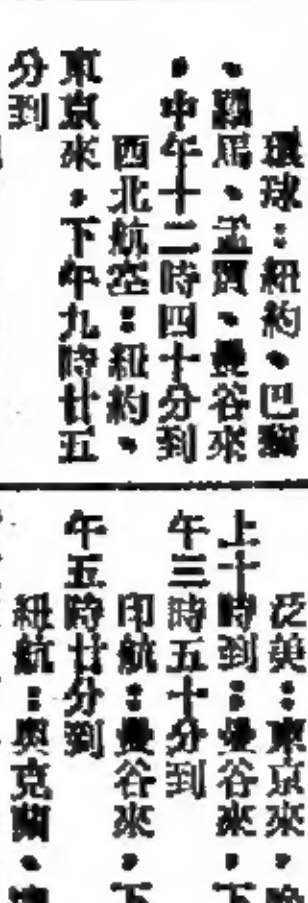 環球：紐約、巴黎
、羅馬、孟買、曼谷來
，中午十二時四十分到
西北航空：紐約、
東京來，下午九時廿五
分到
泛美：東京來，晚
上十時到：曼谷來，下
午三時五十分到
印航：曼谷來，下
午五時廿分到
紐航：奧克蘭、